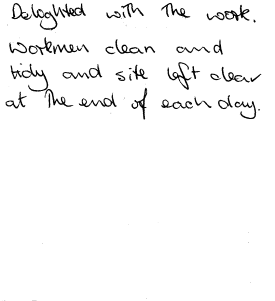 Delighted with the work.
Workmen clean and
tidy and site left clear
at the end of each day.